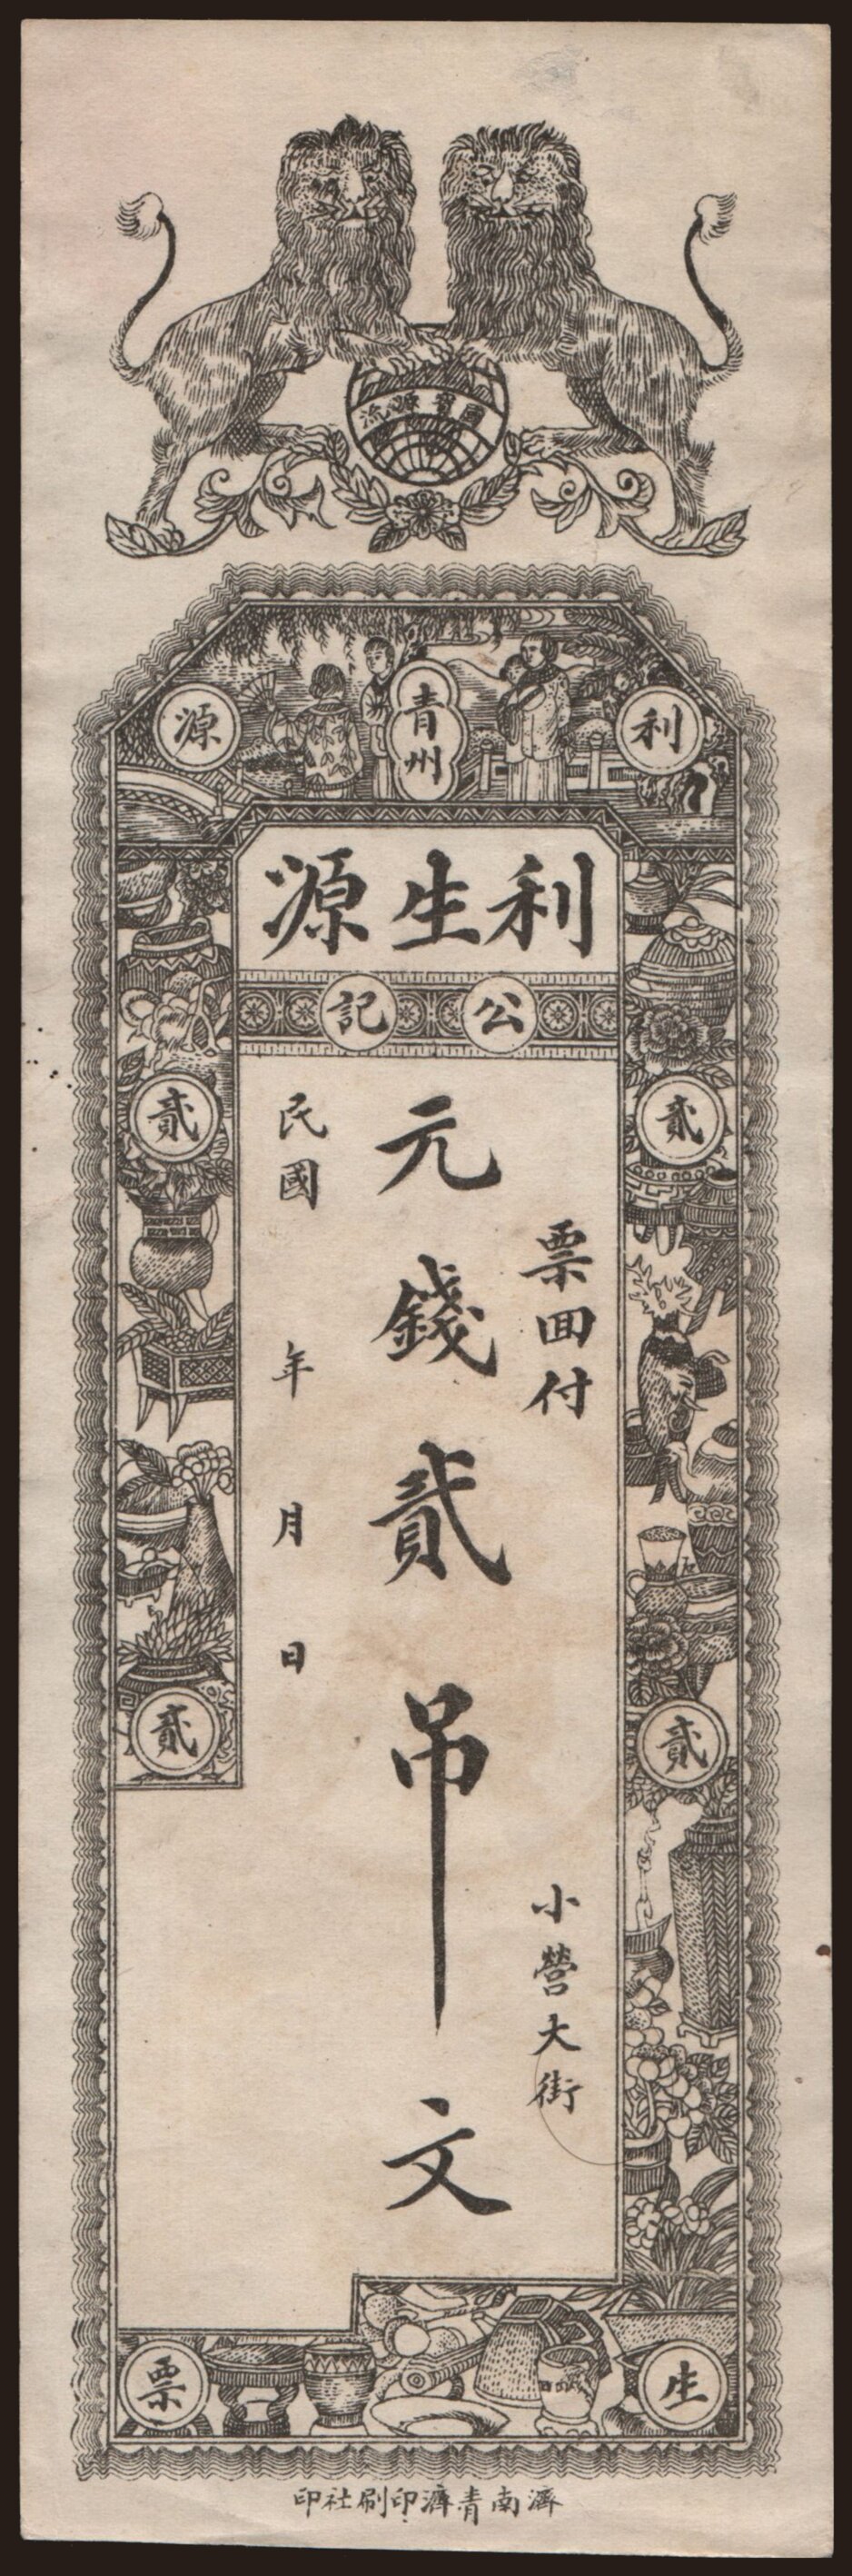 國寶源流
青州
利
源
利生源
公記
貳
貳
票回付
小營大街
元錢貳吊文
民國 年 月 日
貳
貳
生
票
濟南青濟印刷社印